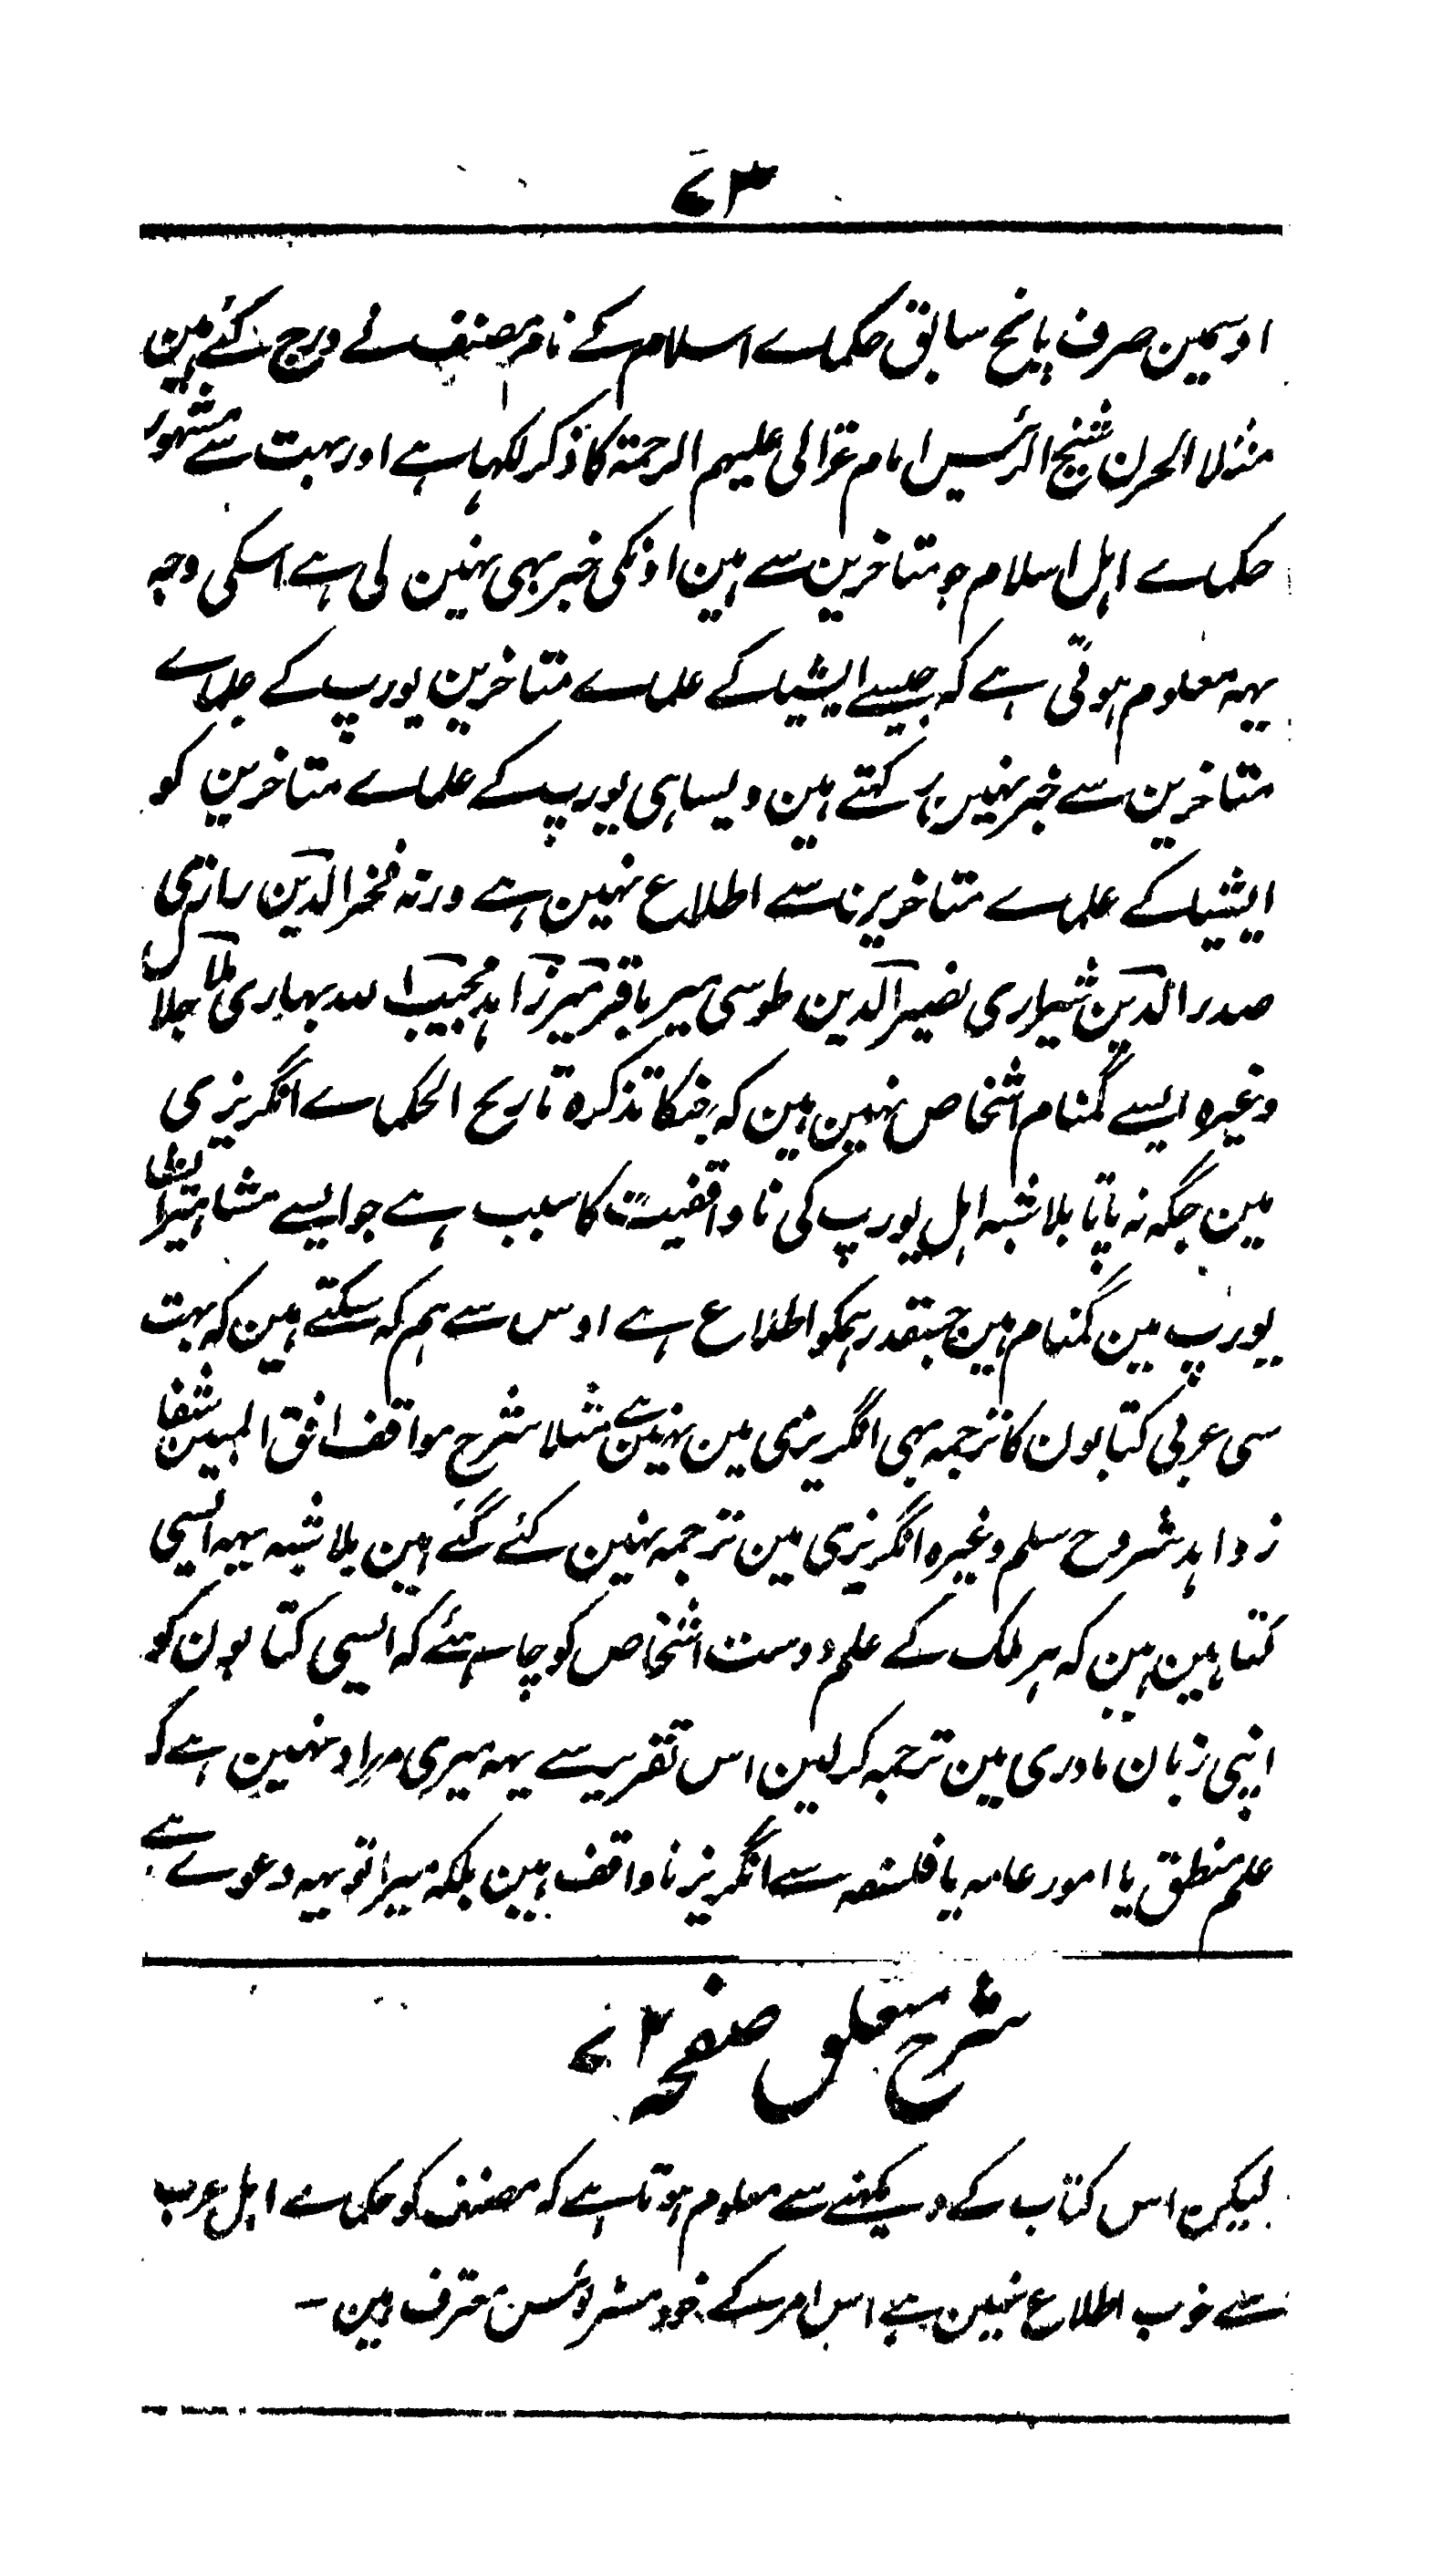 ۷۳
اوسمین صرف پانچ سابق حکماے اسلام کے نام مصنف نے درج کئے ہین
مثلا الحرن شیخ الرئیس امام غزالی علیہم الرحمۃ کا ذکر لکہا ہے اور بہت سے مشہور
حکماے اہل اسلام جو متاخرین سے ہین اونکی خبر بہی نہین لی ہے اسکی وجہ
یہہ معلوم ہوتی ہے کہ جیسے ایشیا کے علماے متاخرین یورپ کے علماے
متاخرین سے خبر نہین رکہتے ہین ویساہی یورپ کے علماے متاخرین کو
ایشیا کے علماے متاخرین سے اطلاع نہین ہے ورنہ فخر الدین رازی
صدر الدین شیرازی نصیر الدین طوسی میر باقر میرزاہد محجیب اللہ بہاری ملا جلال
وغیرہ ایسے گمنام اشخاص نہین ہین کہ جنکا تذکرہ تاریخ الحکماے انگریزی
مین جگہ نہ پاتا بلا شبہ اہل یورپ کی نا واقفیت کا سبب ہے جو ایسے مشاہیر ایشیا
یورپ مین گمنام ہین جسقدر ہمکو اطلاع ہے اوس سے ہم کہ سکتے ہین کہ بہت
سی عربی کتابون کا ترجمہ بہی انگریزی مین نہین ہے مثلا شرح مواقف افق المبین شفا
زواہد شروح سلم وغیرہ انگریزی مین ترجمہ نہین کئے گئے ہین بلا شبہ یہہ ایسی
کتابین ہین کہ ہر ملک کے علم دوست اشخاص کو چاہئے کہ ایسی کتابون کو
اپنی زبان مادری مین ترجمہ کرلین اس تقریر سے یہہ میری مراد نہین ہے کہ
علم منطق یا امور عامہ یا فلسفہ سے انگریز ناواقف ہین بلکہ میرا تو یہہ دعوے ہے
شرح متعلق صفحہ ۷۲
لیکن اس کتاب کے دیکہنے سے معلوم ہوتا ہے کہ مصنف کو حکماے اہل عرب
سے خوب اطلاع نہین ہے اس امر کے خود مسٹر لوئس معترف ہین ـ